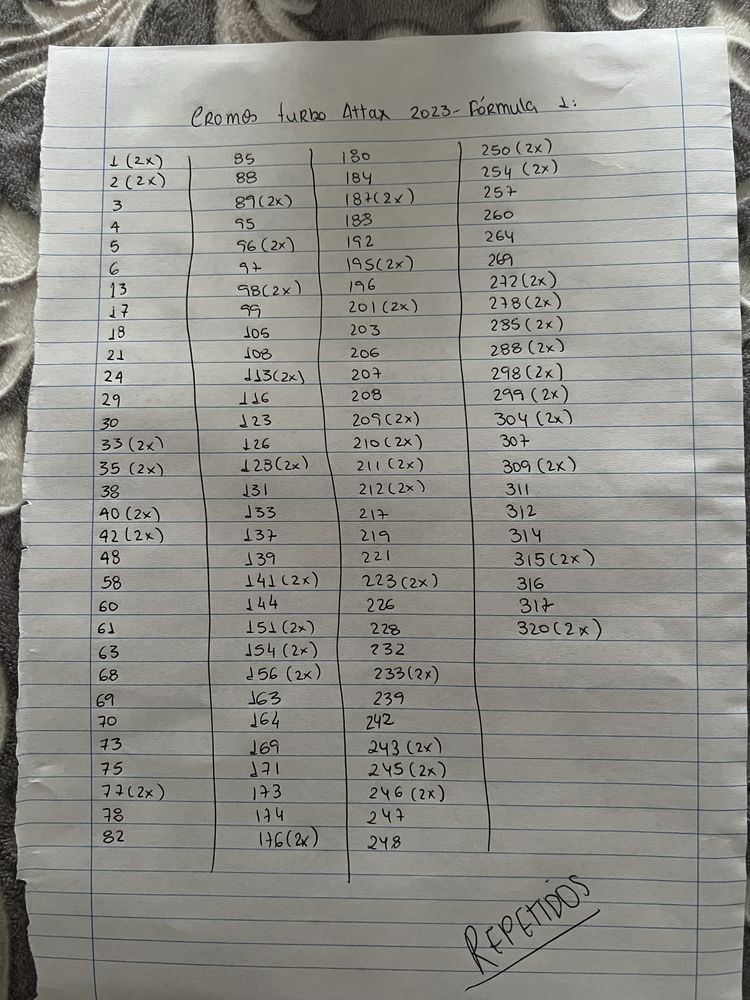 Cromos turbo Attax 2023 - Fórmula 1:
1 (2x)
2 (2x)
3
4
5
6
13
17
18
21
24
29
30
33 (2x)
35 (2x)
38
40 (2x)
42 (2x)
48
58
60
61
63
68
69
70
73
75
77 (2x)
78
82
85
88
89 (2x)
95
96 (2x)
97
98 (2x)
99
105
108
113 (2x)
116
123
126
128 (2x)
131
133
137
139
141 (2x)
144
151 (2x)
154 (2x)
156 (2x)
163
164
169
171
173
174
176 (2x)
180
184
187 (2x)
188
192
195 (2x)
196
201 (2x)
203
206
207
208
209 (2x)
210 (2x)
211 (2x)
212 (2x)
217
219
221
223 (2x)
226
228
232
233 (2x)
239
242
243 (2x)
245 (2x)
246 (2x)
247
248
250 (2x)
254 (2x)
257
260
264
269
272 (2x)
278 (2x)
285 (2x)
288 (2x)
298 (2x)
299 (2x)
304 (2x)
307
309 (2x)
311
312
314
315 (2x)
316
317
320 (2x)
REPETIDOS